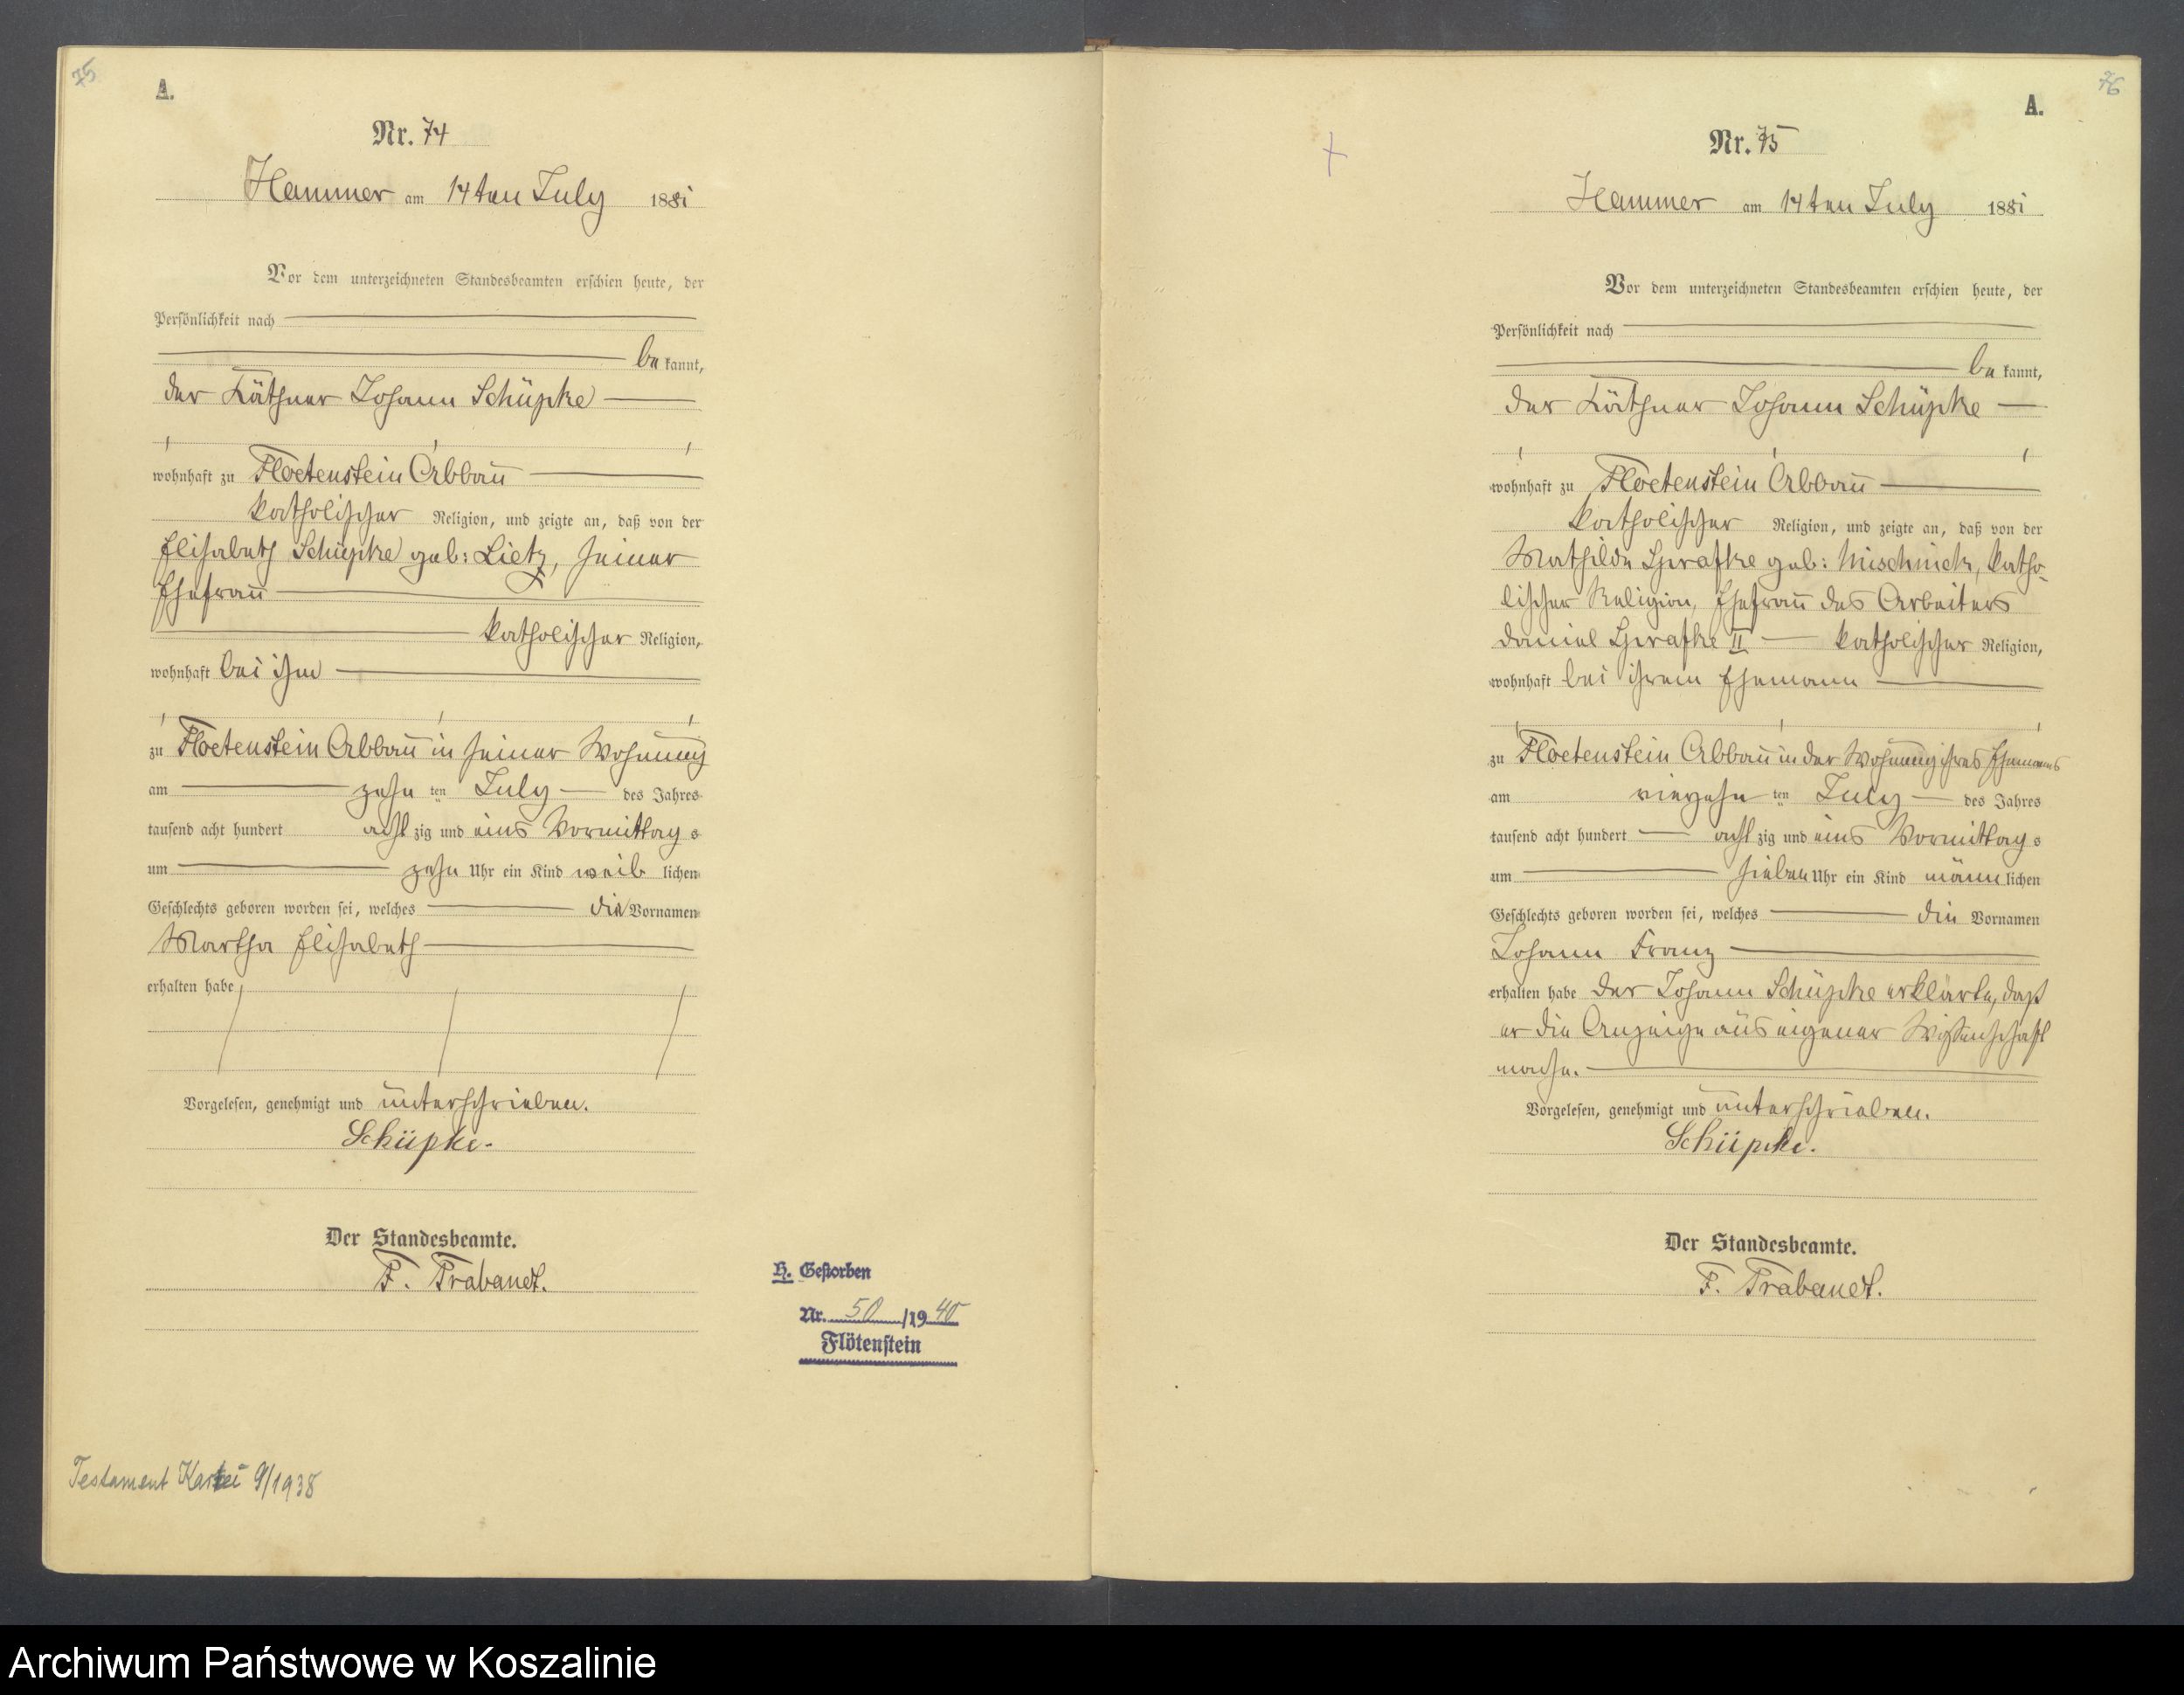 75
A.
Nr. 74
Hammer am 14ten July 1881
Vor dem unterzeichneten Standesbeamten erschien heute, der
Persönlichkeit nach
be kannt,
der Käthner Johann Schüpke
wohnhaft zu Floetenstein Abbau
katholischer Religion, und zeigte an, daß von der
Elisabeth Schüpke geb: Lietz, seiner
Ehefrau
katholischer Religion,
wohnhaft bei ihm
zu Floetenstein Abbau in seiner Wohnung
am zehn ten July des Jahres
tausend acht hundert acht zig und eins Vormittag s
um zehn Uhr ein Kind weib lichen
Geschlechts geboren worden sei, welches die Vornamen
Martha Elisabeth
erhalten habe
Vorgelesen, genehmigt und unterschrieben.
Schüpke.
Der Standesbeamte.
F. Trabandt.
H. Gestorben
Nr. 50 /19 40
Flötenstein
Testament Kartei 9/1938
76
A.
Nr. 75
Hammer am 14ten July 1881
Vor dem unterzeichneten Standesbeamten erschien heute, der
Persönlichkeit nach
be kannt,
der Käthner Johann Schüpke
wohnhaft zu Floetenstein Abbau
katholischer Religion, und zeigte an, daß von der
Mathilde geb: Mischnick, katho-
lischer Religion, Ehefrau des Arbeiters
Daniel II katholischer Religion,
wohnhaft bei ihrem Ehemann
zu Floetenstein Abbau in der Wohnung ihres Ehemanns
am vierzehn ten July des Jahres
tausend acht hundert acht zig und eins Vormittag s
um sieben Uhr ein Kind männ lichen
Geschlechts geboren worden sei, welches die Vornamen
Johann Franz
erhalten habe Der Johann Schüpke erklärte, daß
er die Anzeige aus eigener Wissenschaft
mache.
Vorgelesen, genehmigt und unterschrieben.
Schüpke.
Der Standesbeamte.
F. Trabandt.
Archiwum Państwowe w Koszalinie